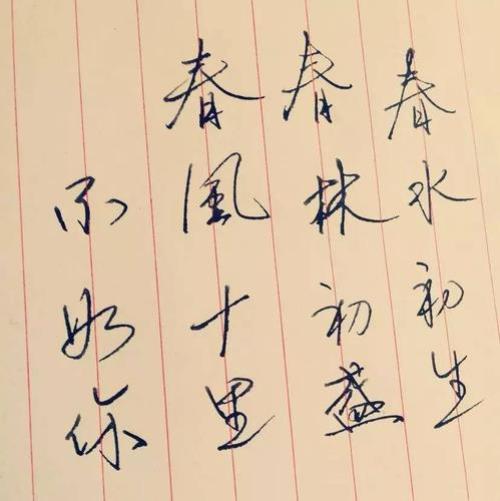 春水初生
春林初盛
春風十里
不如你